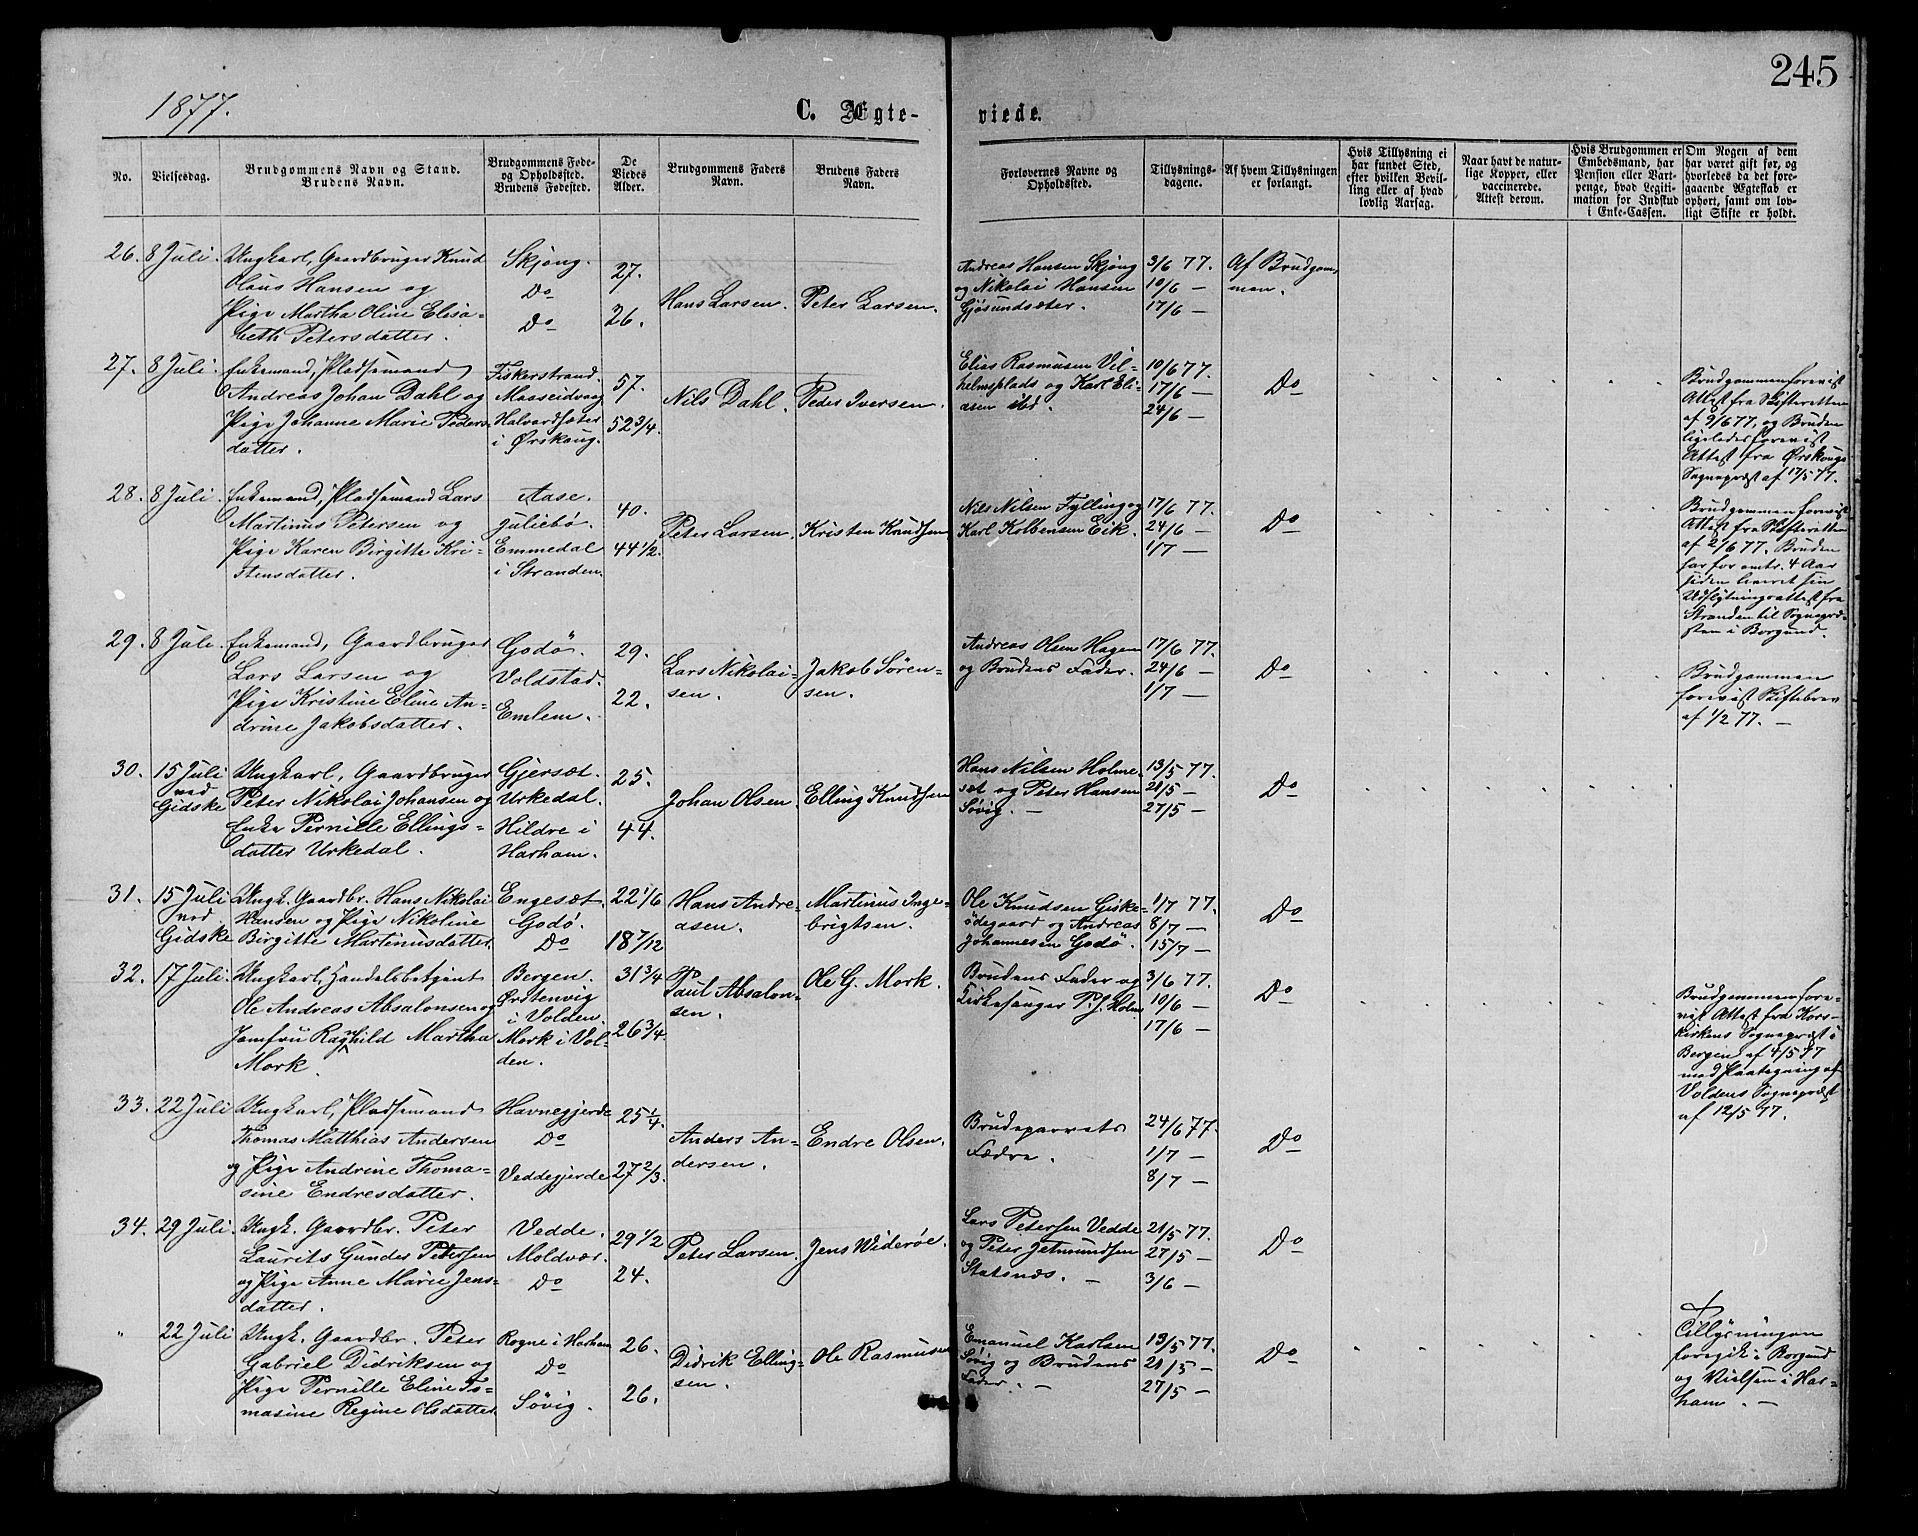 245
1877.
C. Ægte- viede.
No.
Vielsesdag.
Brudgommens Navn og Stand.
Brudens Navn.
Brudgommens Føde-
og Opholdssted.
Brudens Fødested.
De
Viedes
Alder.
Brudgommens Faders
Navn.
Brudens Faders
Navn.
Forlovernes Navne og
Opholdssted.
Tillysnings-
dagene.
Af hvem Tillysningen
er forlangt.
Hvis Tillysning ei
har fundet Sted,
efter hvilken Bevil-
ling eller af hvad
lovlig Aarsag.
Naar havt de natur-
lige Kopper, eller
vaccinerede.
Attest derom.
Hvis Brudgommen er
Embedsmand, har
Pension eller Vart-
penge, hvad Legiti-
mation for Indskud
i Enke-Cassen.
Om Nogen af dem
har været gift før, og
hvorledes da det fore-
gaaende Ægteskab er
ophørt, samt om lov-
ligt Skifte er holdt.
26. 8 Juli.
Ungkarl, Gaardbruger Knud
Olaus Hansen og
Pige Martha Oline Elisa-
beth Petersdatter.
Skjong.
Do
Do
27.
26.
Hans Larsen.
Peter Larsen.
Andreas Hansen Skjong
og Nikolai Hansen
Gjøsundsæter.
3/6 77.
10/6 —
17/6 —
Af Brudgom-
men.
27. 8 Juli.
Enkemand, Pladsemand
Andreas Johan Dahl og
Pige Johanne Marie Peders-
datter.
Fiskerstrand.
Maaseidvaag
Halvardsæter
i Ørskoug.
57.
52 3/4.
Nils Dahl.
Peder Iversen.
Elias Rasmusen Vil-
helmsplads og Karl Eli-
asen ibd.
10/6 77.
17/6 —
24/6 —
Do
Brudgommen forevist
Attest fra Skifteretten
af 9/6 77, og Bruden
ligeledes forevist
Attest fra Ørskougs
Sognepræst af 17/5 77.
28. 8 Juli.
Enkemand, Pladsemand Lars
Martinus Petersen og
Pige Karen Birgitte Kri-
stensdatter.
Aase.
Juliebø.
Emmedal
i Stranden.
40.
44 1/2.
Peter Larsen.
Kristen Knudsen
Nils Nilsen Fylling og
Karl Kolbensen Eik.
17/6 77.
24/6 —
1/7 —
Do
Brudgommen forevist
Attest fra Skifteretten
af 2/6 77. Bruden
har for omtr. 4 Aar
siden leveret sin
Udflytningsattest fra
Stranden til Sognepræ-
sten i Borgund.
29. 8 Juli.
Enkemand, Gaardbruger
Lars Larsen og
Pige Kristine Eline An-
drine Jakobsdatter.
Godø.
Voldstad.
Emlem.
29.
22.
Lars Nikolai-
sen.
Jakob Søren-
sen.
Andreas Olsen Hagen
og Brudens Fader.
17/6 77.
24/6 —
1/7 —
Do
Brudgommen
forevist Skiftebrev
af 1/2 77. —
30. 15 Juli
ved
Gidske
Ungkarl, Gaardbruger
Peter Nikolai Johansen og
Enke Pernille Ellings-
datter Urkedal.
Gjersæt.
Urkedal.
Hildre i
Harham.
25.
44.
Johan Olsen
Elling Knudsen
Hans Nilsen Holme-
sæt og Peter Hansen
Søvig. —
13/5 77.
21/5 —
27/5 —
Do
31. 15 Juli
ved
Gidske
Ungk. Gaardbr. Hans Nikolai
Hansen og Pige Nikoline
Birgitte Martinusdatter
Engesæt.
Godø.
Do
22 1/6
18 7/12
Hans Andre-
asen.
Martinus Inge-
brigtsen.
Ole Knudsen Giske-
ødegaard og Andreas
Johannesen Godø.
1/7 77.
8/7 —
15/7 —
Do
32. 17 Juli.
Ungkarl, Handelsbetjent
Ole Andreas Absalonsen og
Jomfru Ragnhild Martha
Mork.
Bergen.
Ørstenvig
i Volden.
Mork i Vol-
den.
31 3/4
26 3/4.
Paul Absalon-
sen.
Ole G. Mork.
Brudens Fader og
Kirkesanger P. J. Holm
3/6 77.
10/6 —
17/6 —
Do
Brudgommen fore-
vist Attest fra Kors-
kirkens Sognepræst i
Bergen af 4/5 77
med Paategning af
Voldens Sognepræst
af 12/5 77.
33. 22 Juli
Ungkarl, Pladsemand
Thomas Matthias Andersen
og Pige Andrine Thoma-
sine Endresdatter.
Havnegjerde
Do
Veddegjerde
25 1/4.
27 2/3.
Anders An-
dersen.
Endre Olsen.
Brudeparrets
Fædre.
24/6 77.
1/7 —
8/7 —
Do
34. 29 Juli.
Ungk. Gaardbr. Peter
Laurits Gundes Petersen
og Pige Anne Marie Jens-
datter.
Vedde.
Moldvær.
Do
29 1/2
24.
Peter Larsen.
Jens Widerøe.
Lars Petersen Vedde
og Peter Jetmundsen
Statsnæs. —
21/5 77.
27/5 —
3/6 —
Do
" 22 Juli
Ungk. Gaardbr. Peter
Gabriel Didriksen og
Pige Pernille Eline Ts-
masine Regine Olsdatter.
Rogne i Harham
Do
Søvig.
26.
26.
Didrik Elling-
sen.
Ole Rasmusen
Emanuel Karlsen
Søvig og Brudens
Fader. —
13/5 77.
21/5 —
27/5 —
Do
Tillysningen
foregik i Borgund
og Vielsen i Har-
ham. —